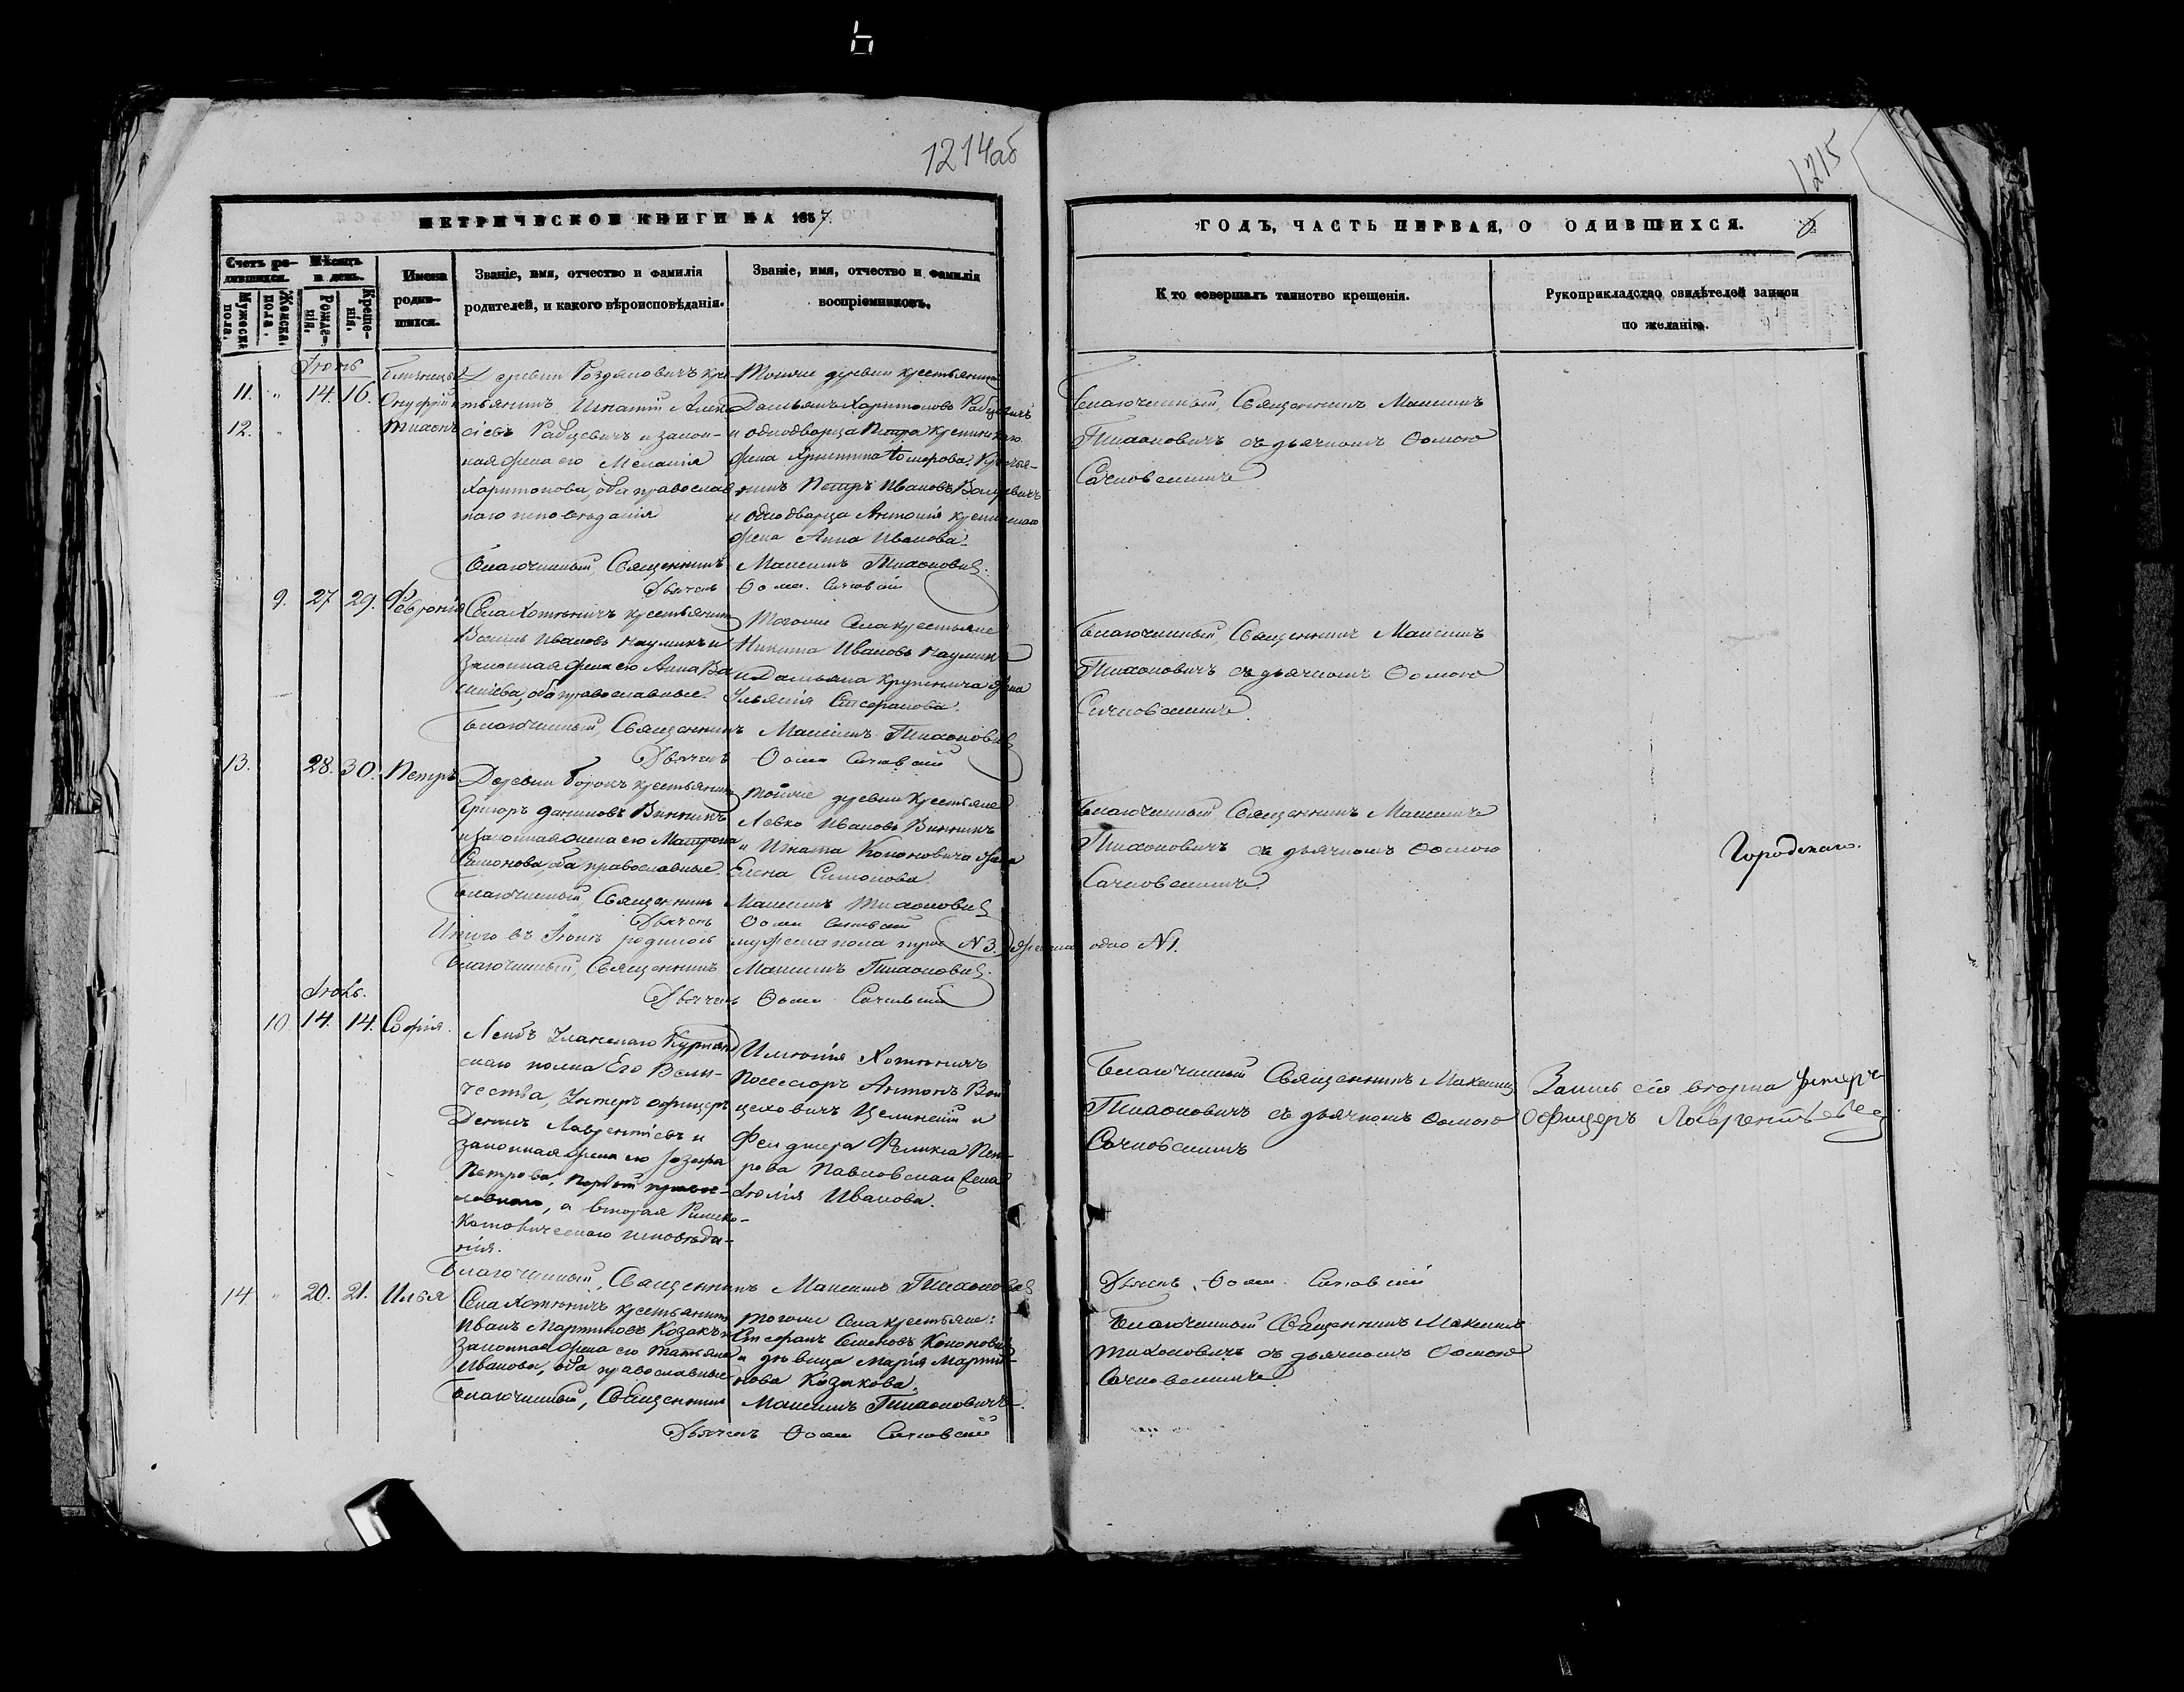 1214аб
1215
МЕТРИЧЕСКОЙ КНИГИ НА 1857.
ГОДЪ, ЧАСТЬ ПЕРВАЯ, О ОДИВШИХСЯ.
Счетъ ро-
дившихся.
Мужеска
пола.
Женска.
пола.
Мѣсяцъ
и день.
Рожде-
нія.
Креще-
нія.
Имена
родив-
шихся.
Званіе, имя, отчество и фамилія
родителей, и какого вѣроисповѣданія.
Званіе, имя, отчество и фамилія
воспріемниковъ.
Кто совершалъ таинство крещенія.
Рукоприкладство свидѣтелей записи
по желанію.
Іюнь
11. 14. 16.
12.
близнецы
Онуфрій и
Тихонъ
Деревни Кре-
стьянинъ Игнатій Алек-
сіевъ Рабцевичъ и закон-
ная жена его Меланія
Харитонова, оба православ-
наго исповѣданія
Тойже деревни крестьянинъ
Дамьянъ Харитоновъ Рабцевичъ
и однодворца Петра
жена Христина Крестья-
нинъ Петръ Ивановъ
и однодворца Антонія
жена Анна Иванова.
Благочинный, Священникъ Максимъ
Тихоновичъ съ дьячкомъ Ѳомою
Сачковскимъ
Благочинный, Священникъ Максимъ Тихоновичъ.
Дьячекъ Ѳома Сачковскій
9. 27 29. Февронія
Села Хотыничъ крестьянинъ
Василь Ивановъ Наумикъ и
законная жена его Анна Ва-
силіева, оба православные.
Тогоже села крестьяне
Никита Ивановъ Наумикъ
и Дамьяна Крупенича жена
Ульянія Стефанова.
Благочинный, Священникъ Максимъ
Тихоновичъ съ дьячкомъ Ѳомою
Сачковскимъ
Благочинный, Священникъ Максимъ Тихоновичъ
Дьячекъ Ѳома Сачковскій
13. 28. 30. Петръ
Деревни Борокъ крестьянинъ
Григоръ Даниловъ Винникъ
и законная жена его Матрона
Симонова, оба православные.
Тойже деревни крестьяне
Левко Ивановъ Винникъ
и Игната Кононовича жена
Елена Симонова.
Благочинный Священникъ Максимъ
Тихоновичъ съ дьячкомъ Ѳомою
Сачковскимъ
Городскаго.
Благочинный, Священникъ Максимъ Тихоновичъ
Дьячекъ Ѳома Сачковскій
Итого въ Іюнѣ родилось мужеска пола трое N 3. женска одно N 1.
Благочинный, Священникъ Максимъ Тихоновичъ.
Дьячекъ Ѳома Сачковскій
Іюль.
10. 14. 14. Софія.
Лейбъ Уланскаго Курлянд-
скаго полка Его Вели-
чества, Унтеръ офицеръ
Лаврентіевъ и
законная жена его Іозефа
Петрова, первый право-
славнаго, а вторая Римско-
Католическаго исповѣда-
нія.
Имѣнія Хотыничъ
Посессоръ Антонъ Вой-
цеховичъ Целинскій и
Фельдшера Феликса Пет-
рова Павловскаго жена
Юлія Иванова.
Благочинный Священникъ Максимъ
Тихоновичъ съ дьячкомъ Ѳомою
Сачковскимъ
Запись сію Унтеръ
Офицеръ Лаврентьевъ
Благочинный, Священникъ Максимъ Тихоновичъ
Дьячекъ Ѳома Сачковскій
14. 20. 21. Илья
Села Хотыничъ крестьянинъ
Иванъ Мартиновъ Козакъ и
законная жена его Татьяна
Иванова, оба православные
Тогоже Села крестьяне:
Стефанъ Семеновъ Кононовичъ
и дѣвица Марія Марти-
нова Козакова.
Благочинный Священникъ Максимъ
Тихоновичъ съ дьячкомъ Ѳомою
Сачковскимъ
Благочинный, Священникъ Максимъ Тихоновичъ.
Дьячекъ Ѳома Сачковскій